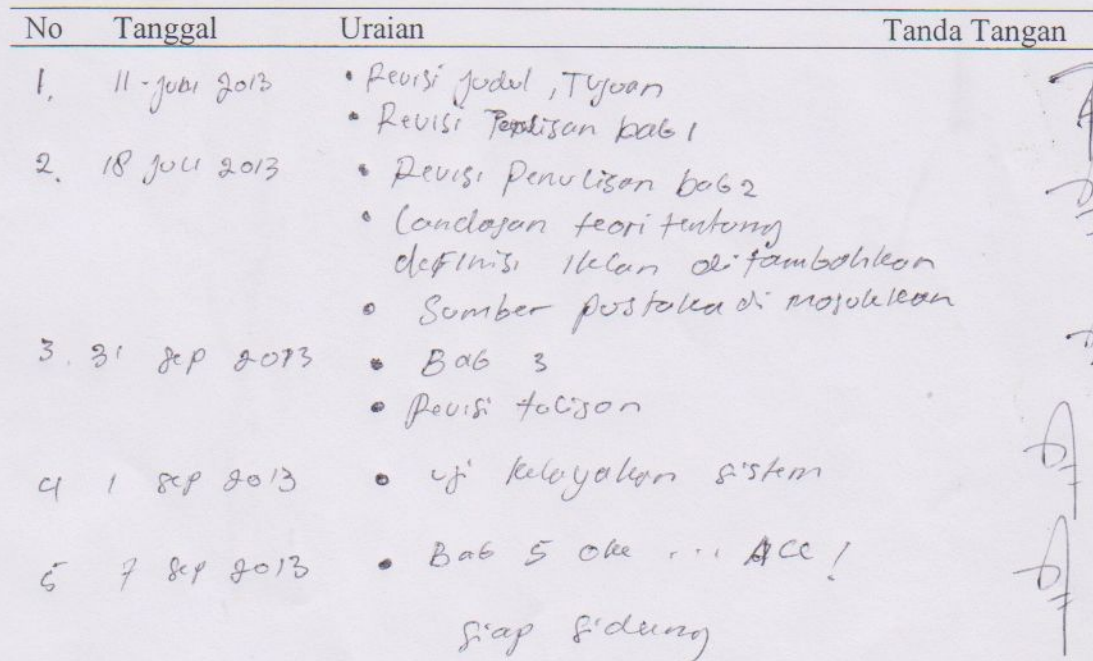 No Tanggal Uraian Tanda Tangan
1. 11-Juni 2013 • Revisi Judul, Tujuan
• Revisi Penulisan bab 1
2. 18 Juli 2013 • Revisi Penulisan bab 2
• Landasan teori tentang
definisi iklan ditambahkan
• Sumber pustaka di masukkan
3. 31 Sep 2013 • Bab 3
• Revisi tulisan
4 1 Sep 2013 • Uji kelayakan sistem
5 7 Sep 2013 • Bab 5 oke ... ACC!
Siap Sidang